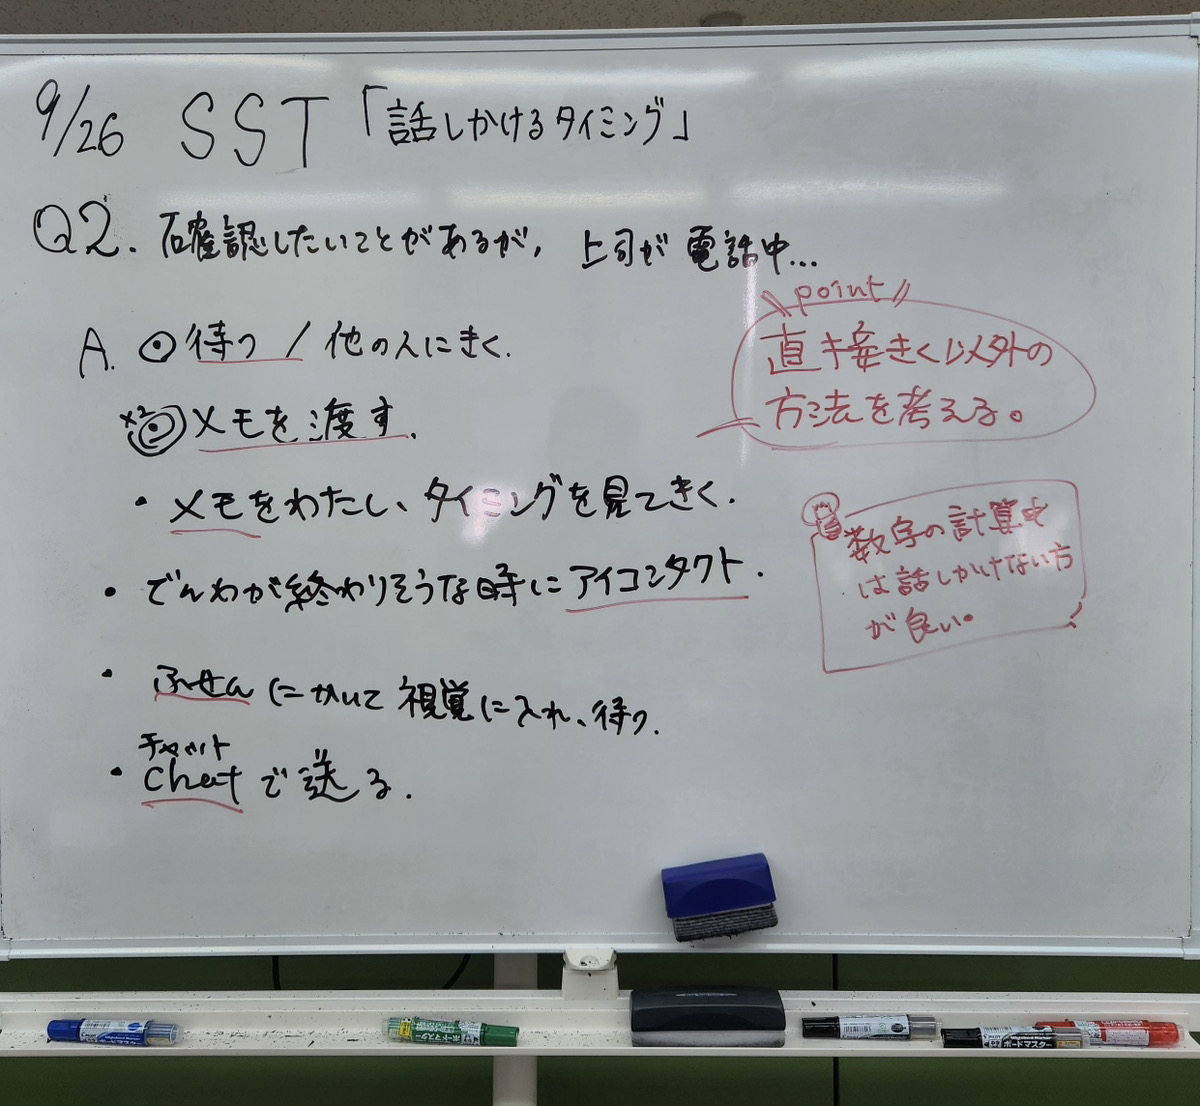 9/26 SST「話しかけるタイミング」
Q2. 確認したいことがあるが, 上司が電話中...
A. ◎待つ / 他の人にきく.
×2 ◎メモを渡す.
・メモをわたし、タイミングを見てきく.
・でんわが終わりそうな時にアイコンタクト.
・ふせんにかいて視覚に入れ、待つ.
チャット
・Chatで送る.
\\ point //
直接きく以外の
方法を考える。
数字の計算中
は話しかけない方
が良い。
ボードマスター
ボードマスター